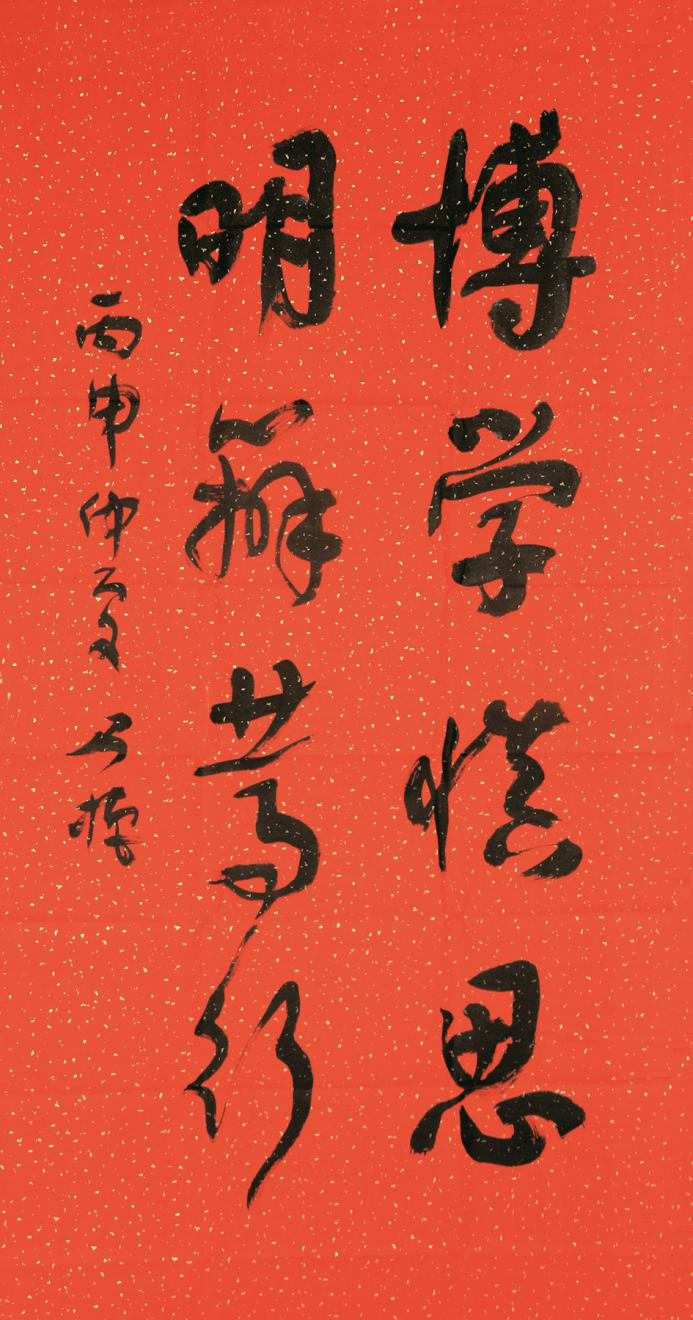 博学慎思
明辨笃行
丙申仲夏